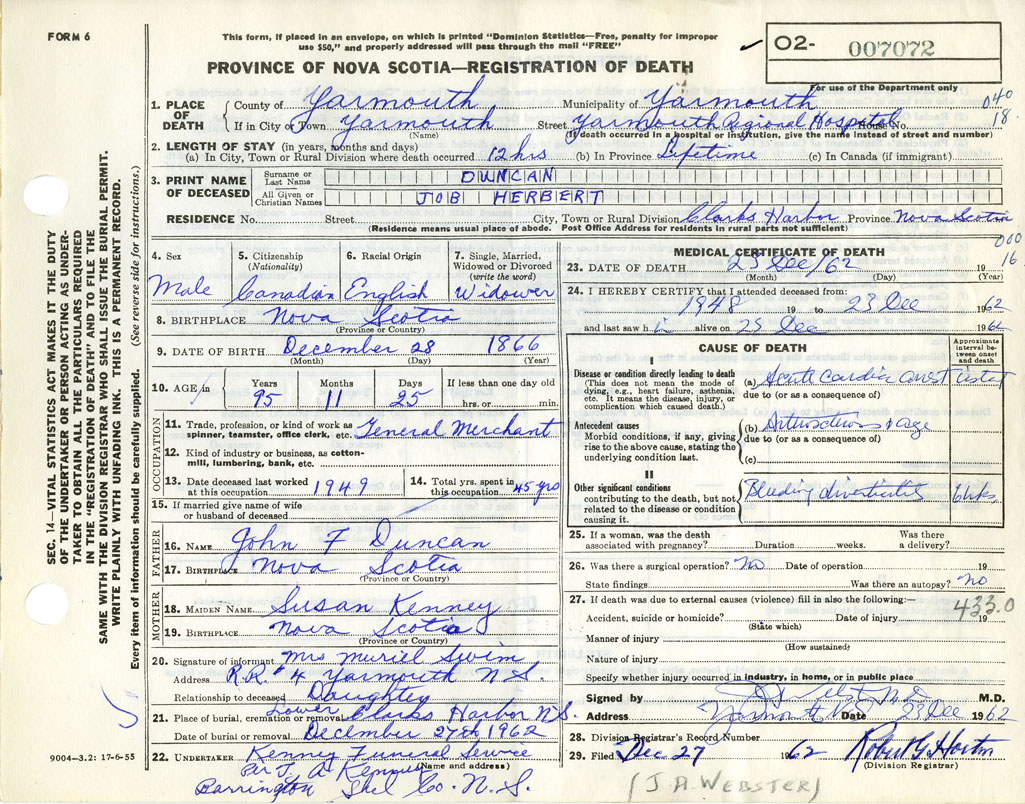 FORM 6
This form, if placed in an envelope, on which is printed "Dominion Statistics—Free, penalty for improper
use $50," and properly addressed will pass through the mail "FREE"
O2- 007072
PROVINCE OF NOVA SCOTIA—REGISTRATION OF DEATH
For use of the Department only
1. PLACE OF DEATH
County of Yarmouth Municipality of Yarmouth 040
If in City or Town Yarmouth Street Yarmouth Regional Hospital House No. 18
(Name) (If death occurred in a hospital or institution, give the name instead of street and number)
2. LENGTH OF STAY (in years, months and days)
(a) In City, Town or Rural Division where death occurred 12 hrs (b) In Province Lifetime (c) In Canada (if immigrant)
3. PRINT NAME OF DECEASED
Surname or Last Name DUNCAN
All Given or Christian Names JOB HERBERT
RESIDENCE No. Street City, Town or Rural Division Clarks Harbor Province Nova Scotia
(Residence means usual place of abode. Post Office Address for residents in rural parts not sufficient)
000
16
4. Sex 5. Citizenship (Nationality) 6. Racial Origin 7. Single, Married, Widowed or Divorced (write the word)
Male Canadian English Widower
8. BIRTHPLACE Nova Scotia
(Province or Country)
9. DATE OF BIRTH December 28 1866
(Month) (Day) (Year)
10. AGE in Years Months Days If less than one day old
95 11 25 hrs. or min.
OCCUPATION
11. Trade, profession, or kind of work as spinner, teamster, office clerk, etc. General Merchant
12. Kind of industry or business, as cotton-mill, lumbering, bank, etc.
13. Date deceased last worked at this occupation 1949 14. Total yrs. spent in this occupation 45 yrs
15. If married give name of wife or husband of deceased
FATHER
16. NAME John F Duncan
17. BIRTHPLACE Nova Scotia
(Province or Country)
MOTHER
18. MAIDEN NAME Susan Kenney
19. BIRTHPLACE Nova Scotia
(Province or Country)
20. Signature of informant Mrs Muriel Swim
Address R.R. #4 Yarmouth N.S.
Relationship to deceased Daughter
21. Place of burial, cremation or removal Lower Clarks Harbor N.S.
Date of burial or removal December 27th 1962
22. UNDERTAKER Kenney Funeral Service
(Name and address)
Per J. A Kenney
Barrington Shel Co. N.S.
MEDICAL CERTIFICATE OF DEATH
23. DATE OF DEATH 23 Dec/62 19
(Month) (Day) (Year)
24. I HEREBY CERTIFY that I attended deceased from:
1948 19 to 23 Dec 1962
and last saw h alive on 23 Dec 1962
CAUSE OF DEATH
Approximate interval between onset and death
I
Disease or condition directly leading to death
(This does not mean the mode of dying, e.g., heart failure, asthenia, etc. It means the disease, injury, or complication which caused death.)
(a) Acute cardiac arrest instant
due to (or as a consequence of)
Antecedent causes
Morbid conditions, if any, giving rise to the above cause, stating the underlying condition last.
(b) & age
due to (or as a consequence of)
(c)
II
Other significant conditions contributing to the death, but not related to the disease or condition causing it.
Bleeding diverticulitis
25. If a woman, was the death associated with pregnancy? Duration weeks. Was there a delivery?
26. Was there a surgical operation? No Date of operation 19
State findings Was there an autopsy? No
27. If death was due to external causes (violence) fill in also the following:—
433.0
Accident, suicide or homicide? Date of injury 19
(State which)
Manner of injury
(How sustained)
Nature of injury
Specify whether injury occurred in industry, in home, or in public place
Signed by M.D.
Address Yarmouth N.S. Date 23 Dec 1962
28. Division Registrar's Record Number
29. Filed Dec 27 1962 Robert G Horton
(Division Registrar)
(J.A. WEBSTER)
SEC. 14—VITAL STATISTICS ACT MAKES IT THE DUTY
OF THE UNDERTAKER OR PERSON ACTING AS UNDER-
TAKER TO OBTAIN ALL THE PARTICULARS REQUIRED
IN THE "REGISTRATION OF DEATH" AND TO FILE THE
SAME WITH THE DIVISION REGISTRAR WHO SHALL ISSUE THE BURIAL PERMIT.
WRITE PLAINLY WITH UNFADING INK. THIS IS A PERMANENT RECORD.
Every item of information should be carefully supplied. (See reverse side for instructions.)
9004-3.2: 17-6-55